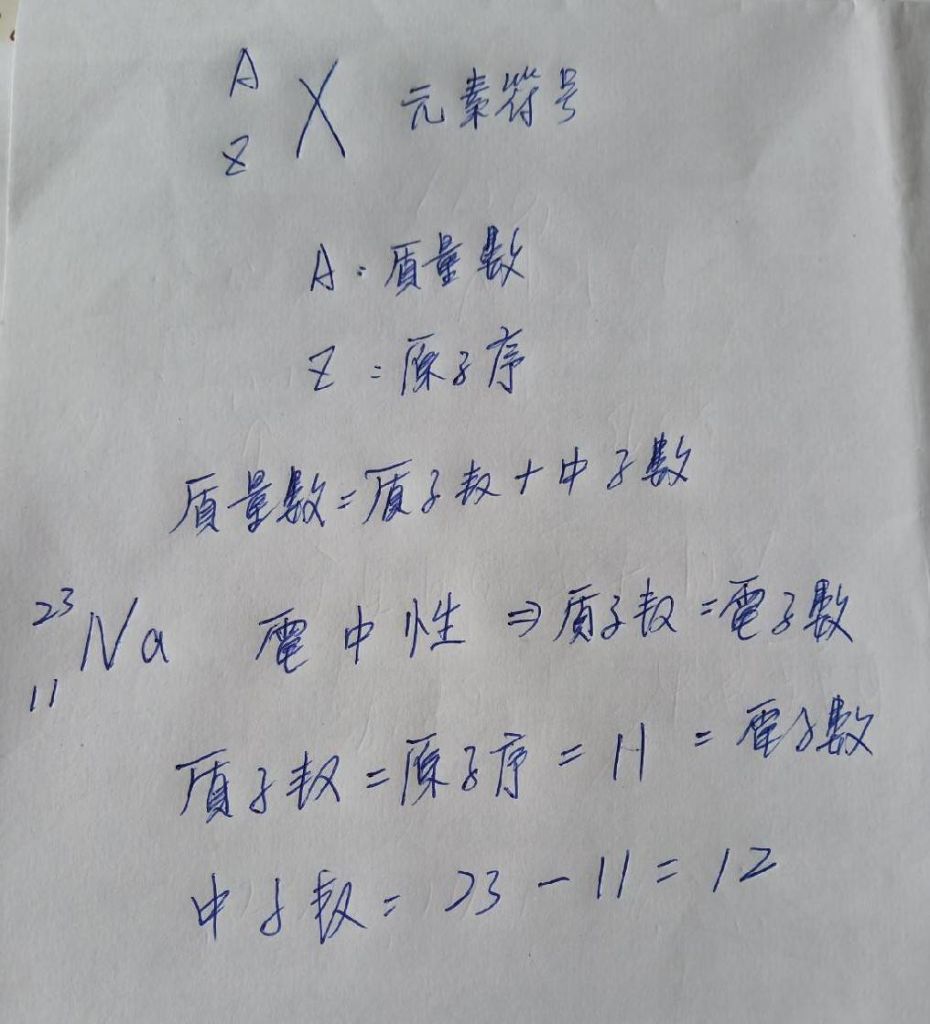 A
Z X 元素符号
A:質量數
Z:原子序
質量數=質子数+中子數
23
11 Na 電中性 ⇒ 質子数=電子數
質子数=原子序=11=電子數
中子数=23-11=12